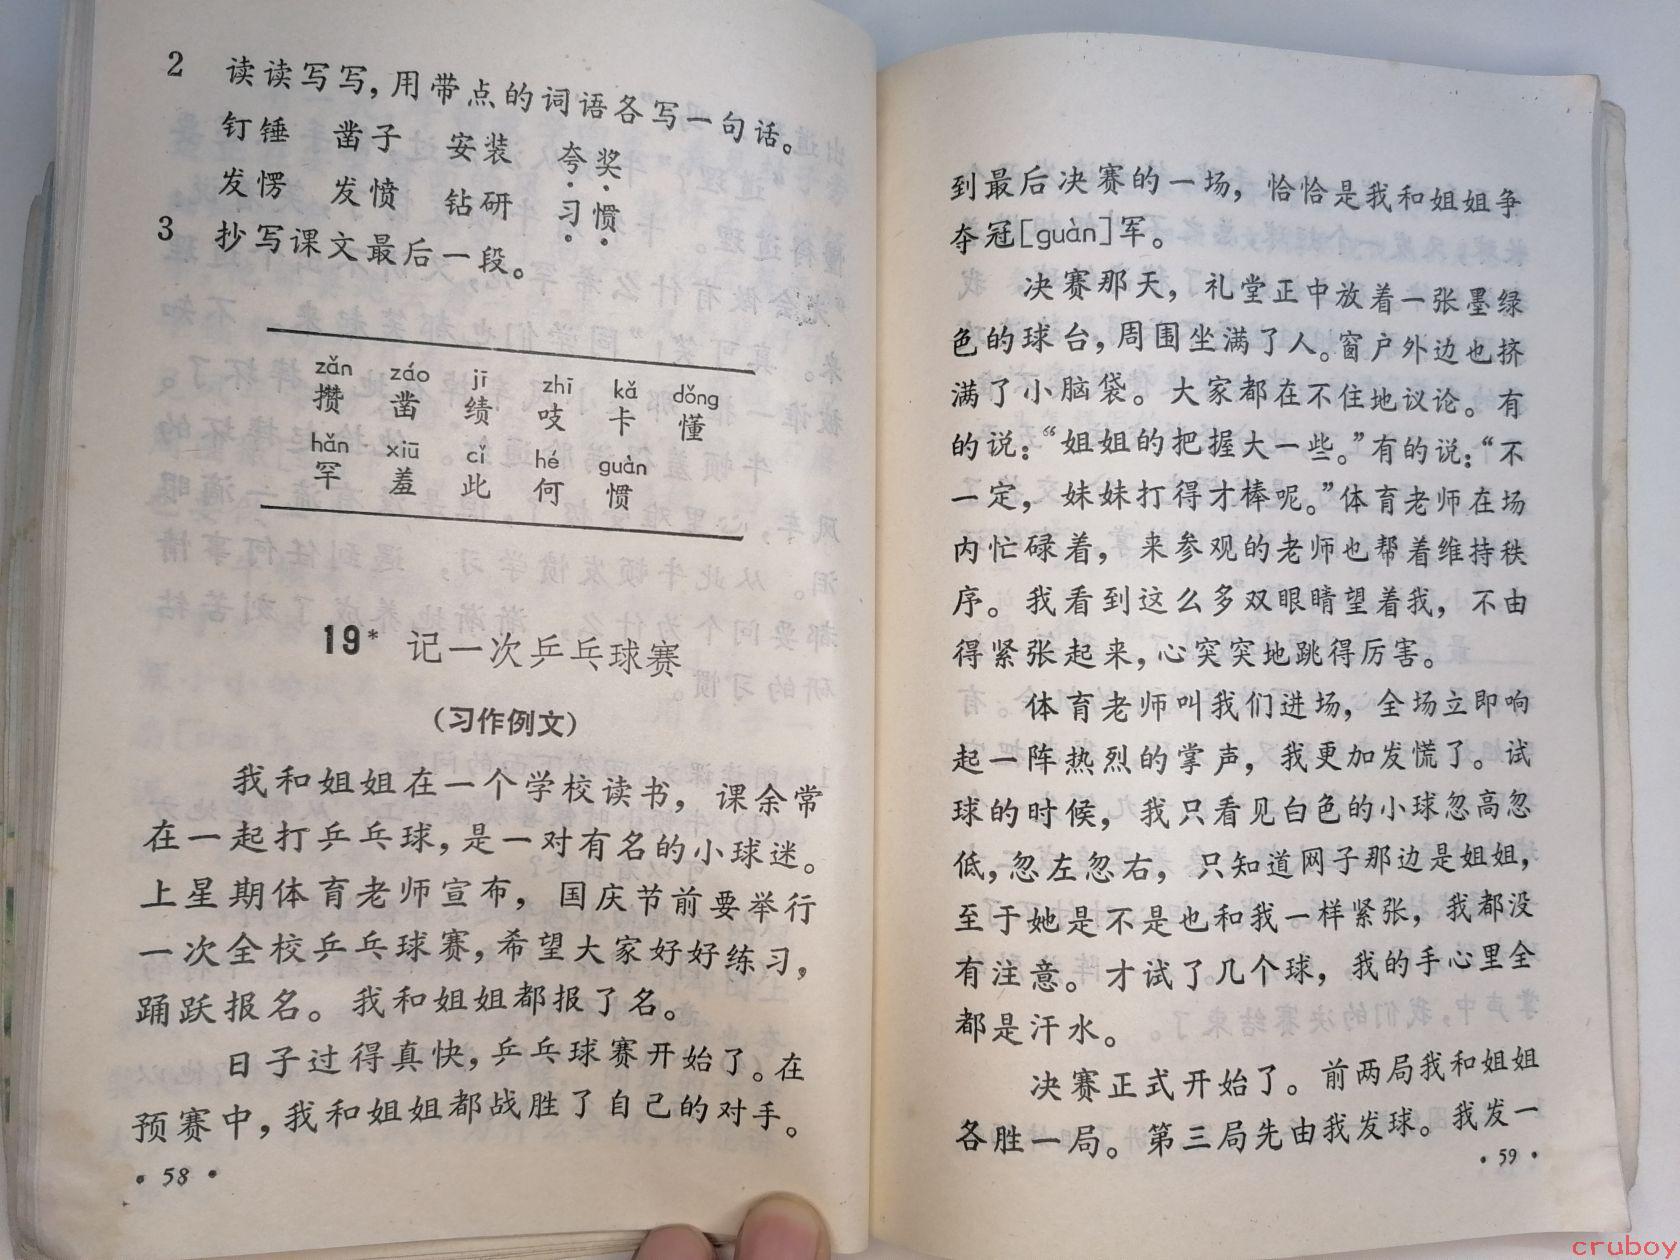 2 读读写写，用带点的词语各写一句话。
钉锤 凿子 安装 夸奖
发愣 发愤 钻研 习惯
3 抄写课文最后一段。
zǎn záo jī zhī kǎ dǒng
攒 凿 绩 吱 卡 懂
hǎn xiū cǐ hé guàn
罕 羞 此 何 惯
19* 记一次乒乓球赛
（习作例文）
我和姐姐在一个学校读书，课余常
在一起打乒乓球，是一对有名的小球迷。
上星期体育老师宣布，国庆节前要举行
一次全校乒乓球赛，希望大家好好练习，
踊跃报名。我和姐姐都报了名。
日子过得真快，乒乓球赛开始了。在
预赛中，我和姐姐都战胜了自己的对手。
·58·
到最后决赛的一场，恰恰是我和姐姐争
夺冠[guàn]军。
决赛那天，礼堂正中放着一张墨绿
色的球台，周围坐满了人。窗户外边也挤
满了小脑袋。大家都在不住地议论。有
的说：“姐姐的把握大一些。”有的说：“不
一定，妹妹打得才棒呢。”体育老师在场
内忙碌着，来参观的老师也帮着维持秩
序。我看到这么多双眼睛望着我，不由
得紧张起来，心突突地跳得厉害。
体育老师叫我们进场，全场立即响
起一阵热烈的掌声，我更加发慌了。试
球的时候，我只看见白色的小球忽高忽
低，忽左忽右，只知道网子那边是姐姐，
至于她是不是也和我一样紧张，我都没
有注意。才试了几个球，我的手心里全
都是汗水。
决赛正式开始了。前两局我和姐姐
各胜一局。第三局先由我发球。我发一
·59·
cruboy